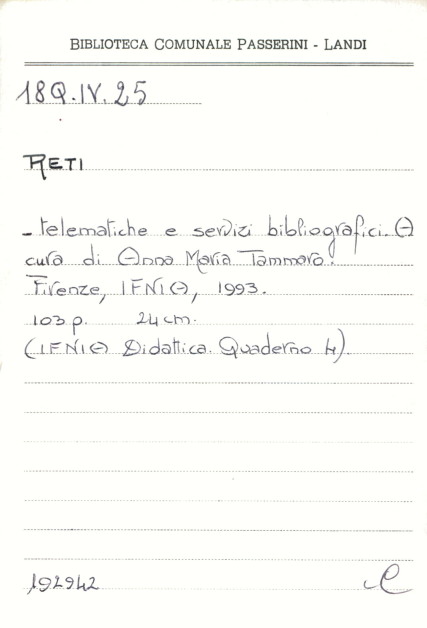 BIBLIOTECA COMUNALE PASSERINI - LANDI
18Q.IV.25
RETI
- telematiche e servizi bibliografici. A
cura di Anna Maria Tammaro.
Firenze, IFNIA, 1993.
103 p. 24 cm.
(IFNIA Didattica. Quaderno 4).
192942